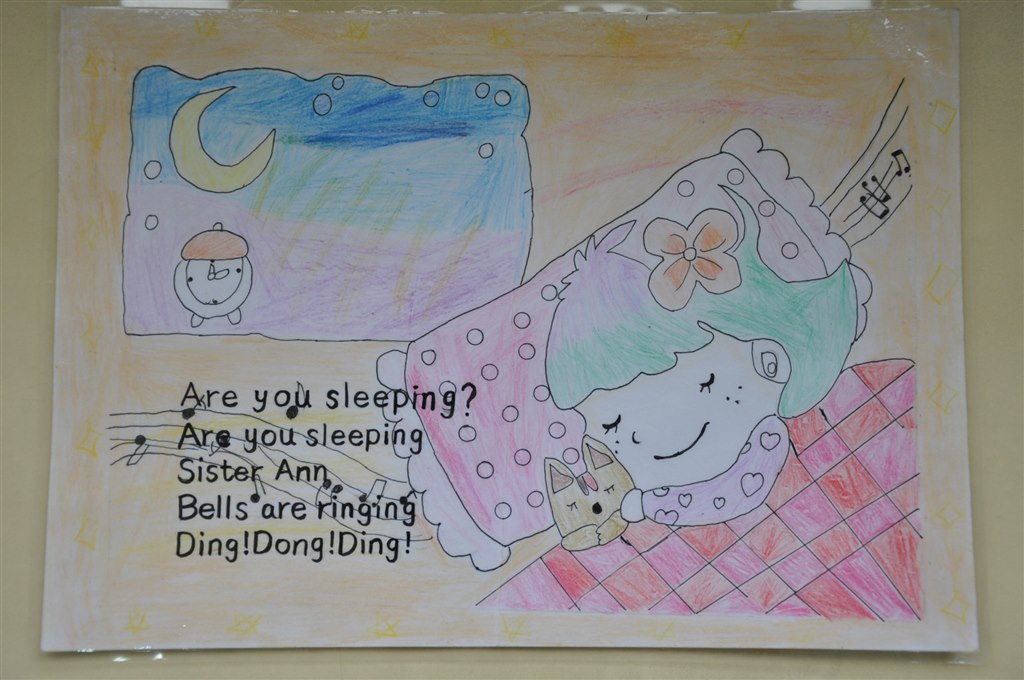 Are you sleeping?
Are you sleeping
Sister Ann,
Bells are ringing
Ding!Dong!Ding!